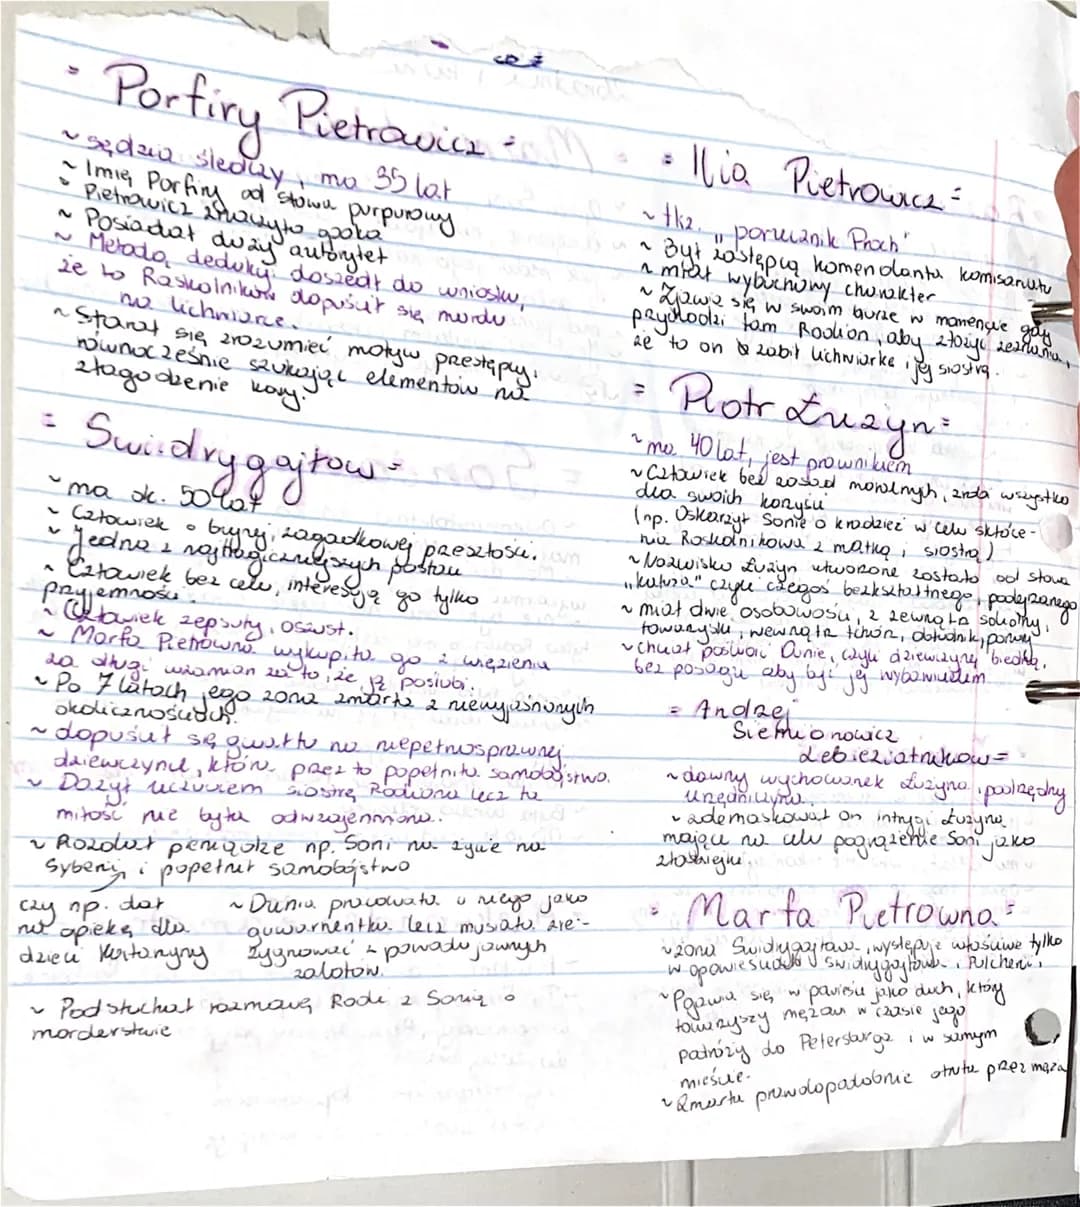 = Porfiry Pietrowicz =
~ sędzia śledczy, ma 35 lat
~ Imię Porfiry od słowa purpurowy
~ Pietrowicz znaczyło opoka
~ Posiadał duży autorytet
~ Metodą dedukcji doszedł do wniosku,
że to Raskolnikow dopuścił się mordu
na lichwiarce.
~ Starał się zrozumieć motyw przestępcy,
równocześnie szukając elementów na
złagodzenie kary.
= Swidrygajłow =
~ ma ok. 50 lat
~ Człowiek o burzej, zagadkowej przeszłości.
~ Jedna z najtragiczniejszych postaci
~ Człowiek bez celu, interesują go tylko
przyjemności.
~ Człowiek zepsuty, oszust.
~ Marfa Pietrowna wykupiła go z więzienia
za długi wzamian za to, że ją poślubi.
~ Po 7 latach jego żona zmarła z niewyjaśnionych
okolicznościach.
~ dopuścił się gwałtu na niepełnosprawnej
dziewczynce, która przez to popełniła samobójstwo.
~ Dażył uczuciem siostrę Rodiona lecz ta
miłość nie była odwzajemniona.
~ Rozdał pieniądze np. Soni na życie na
Syberii i popełnił samobójstwo
czy np. dał
na opiekę dla
dzieci Katarzyny
~ Dunia pracowała u niego jako
guwernantka lecz musiała zre-
zygnować z powodu jawnych
zalotów.
~ Podsłuchał rozmowę Rodi z Sonią o
morderstwie
= Ilia Pietrowicz =
~ tkz. „porucznik Proch"
~ Był zastępcą komendanta komisariatu
~ miał wybuchowy charakter
~ Zjawia się w swoim biurze w momencie gdy
przychodzi tam Rodion, aby złożyć zeznania,
że to on zabił lichwiarkę i jej siostrą.
= Piotr Łużyn =
~ ma 40 lat, jest prawnikiem
~ Człowiek bez zasad moralnych, zrobi wszystko
dla swoich korzyści
(np. Oskarżył Sonię o kradzież w celu skłóce-
nia Raskolnikowa z matką i siostrą)
~ Nazwisko Łużyn utworzone zostało od słowa
„kałuża" czyli czegoś bezkształtnego, podejrzanego
~ miał dwie osobowości, z zewnątrz sokolny,
towarzyski, wewnątrz tchórz, obłudnik, ponury
~ chciał poślubić Dunię, czyli dziewczynę biedną,
bez posagu aby być jej wybawicielem.
= Andrzej
Siemionowicz
Lebieziatnikow =
~ dawny wychowanek Łużyna, podrzędny
urzędniczyna.
~ zdemaskował on intrygi Łużyna
mające na celu pogrążenie Soni jako
złodziejki.
= Marfa Pietrowna =
~ żona Swidrygajłowa, występuje właściwie tylko
w opowieściach Swidrygajłowa i Pulcherii.
~ Pojawia się w powieści jako duch, który
towarzyszy mężowi w czasie jego
podróży do Petersburga i w samym
mieście.
~ Zmarła prawdopodobnie otruta przez męża